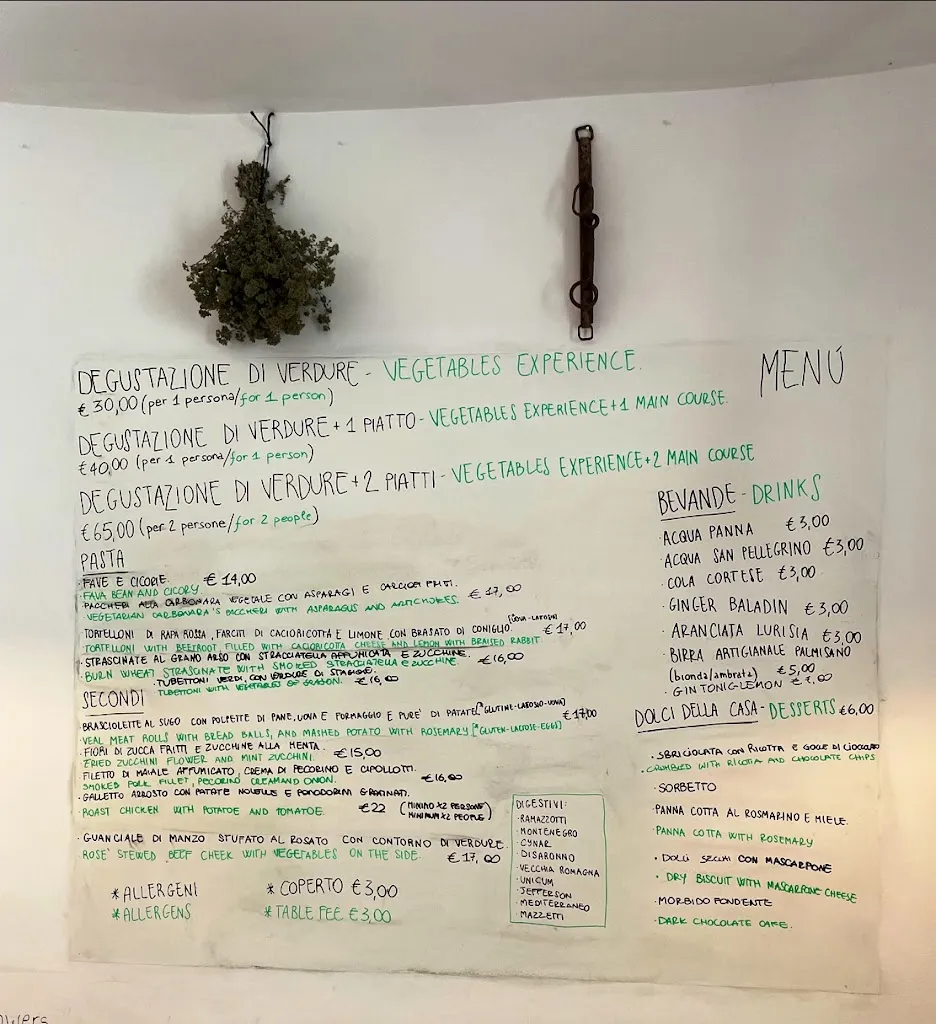 MENÚ
DEGUSTAZIONE DI VERDURE - VEGETABLES EXPERIENCE.
€ 30,00 (per 1 persona/for 1 person)
DEGUSTAZIONE DI VERDURE + 1 PIATTO - VEGETABLES EXPERIENCE + 1 MAIN COURSE.
€40,00 (per 1 persona/for 1 person)
DEGUSTAZIONE DI VERDURE + 2 PIATTI - VEGETABLES EXPERIENCE + 2 MAIN COURSE
€ 65,00 (per 2 persone/for 2 people)
PASTA
· FAVE E CICORIE. € 14,00
· FAVA BEAN AND CICORY
· PACCHERI ALLA CARBONARA VEGETALE CON ASPARAGI E CARCIOFI FRITI.
· VEGETARIAN CARBONARA'S PACCHERI WITH ASPARAGUS AND ARTICHOKES. € 17,00
· TORTELLONI DI RAPA ROSSA, FARCITI DI CACIORICOTTA E LIMONE CON BRASATO DI CONIGLIO € 17,00
TORTELLONI WITH BEETROOT, FILLED WITH CACIORICOTTA CHEESE AND LEMON WITH BRAISED RABBIT
· STRASCINATE AL GRANO ARSO CON STRACCIATELLA AFFUMICATA E ZUCCHINE.
· BURN WHEAT STRASCINATE WITH SMOKED STRACCIATELLA E ZUCCHINE. €16,00
· TUBETTONI VERDI, CON VERDURE DI STAGIONE.
TUBETTONI WITH VEGETABLES OF SEASON. €16,00
SECONDI
· BRASCIOLETTE AL SUGO CON POLPETTE DI PANE, UOVA E FORMAGGIO E PURE' DI PATATE [*GLUTINE-LATOSIO-UOVA]
VEAL MEAT ROLLS WITH BREAD BALLS, AND MASHED POTATO WITH ROSEMARY [*GLUTEN-LACTOSE-EGGS] € 17,00
· FIORI DI ZUCCA FRITTI E ZUCCHINE ALLA MENTA.
· FRIED ZUCCHINI FLOWER AND MINT ZUCCHINI. € 15,00
· FILETTO DI MAIALE AFFUMICATO, CREMA DI PECORINO E CIPOLLOTTI.
SMOKED PORK FILLET, PECORINO CREAM AND ONION. €16,00
· GALLETTO ARROSTO CON PATATE NOVELLE E POMODORINI GRATINATI.
· ROAST CHICKEN WITH POTATOE AND TOMATOE. €22 (MINIMO X2 PERSONE/
MINIMUM X2 PEOPLE)
· GUANCIALE DI MANZO STUFATO AL ROSATO CON CONTORNO DI VERDURE.
ROSE' STEWED BEEF CHEEK WITH VEGETABLES ON THE SIDE. € 17,00
* ALLERGENI
* ALLERGENS
* COPERTO €3,00
* TABLE FEE €3,00
DIGESTIVI:
· RAMAZZOTTI
· MONTENEGRO
· CYNAR
· DISARONNO
· VECCHIA ROMAGNA
· UNICUM
· JEFFERSON
· MEDITERRANEO
· MAZZETTI
BEVANDE - DRINKS
· ACQUA PANNA €3,00
· ACQUA SAN PELLEGRINO €3,00
· COLA CORTESE €3,00
· GINGER BALADIN €3,00
· ARANCIATA LURISIA €3,00
· BIRRA ARTIGIANALE PALMISANO
(bionda/ambrata) €5,00
· GIN TONIC-LEMON
DOLCI DELLA CASA - DESSERTS €6,00
· SBRICIOLATA CON RICOTTA E GOCCE DI CIOCCOLATO
· CRUMBLED WITH RICOTTA AND CHOCOLATE CHIPS
· SORBETTO
PANNA COTTA AL ROSMARINO E MIELE.
· PANNA COTTA WITH ROSEMARY
· DOLCI SECCHI CON MASCARPONE
· DRY BISCUIT WITH MASCARPONE CHEESE
· MORBIDO FONDENTE
· DARK CHOCOLATE CAKE.